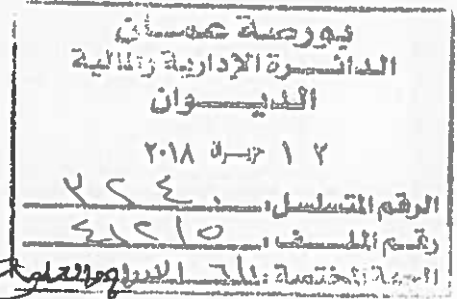 بورصة عمان
الدائرة الإدارية والمالية
الديوان
٢١ حزيران ٢٠١٨
الرقم المتسلسل: ٣٢٤٠
رقم الملف: ٤١٢١٥
الجهة المختصة: